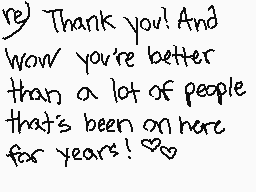 re) Thank you! And
wow you're better
than a lot of people
that's been on here
for years! ♡♡